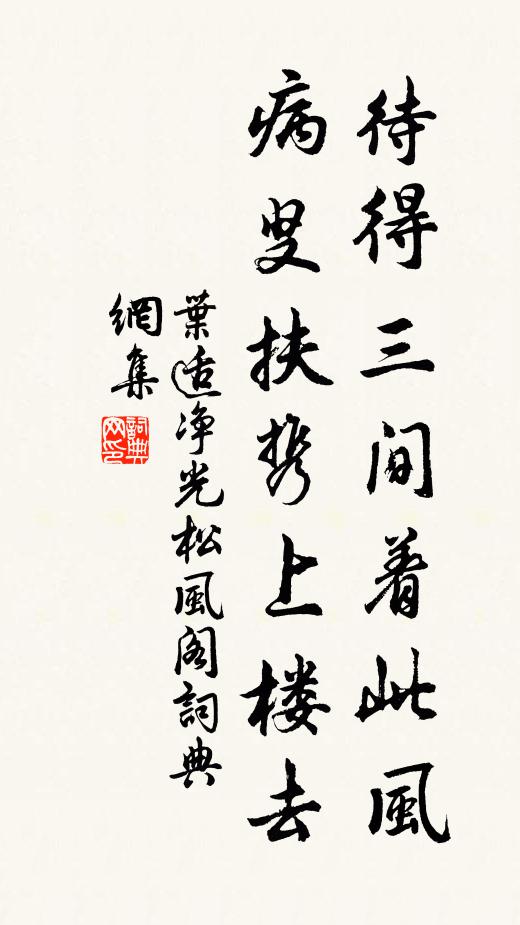 待得三间着此風
病叟扶携上楼去
葉適净光松風阁詞典
網集
詞典
网印